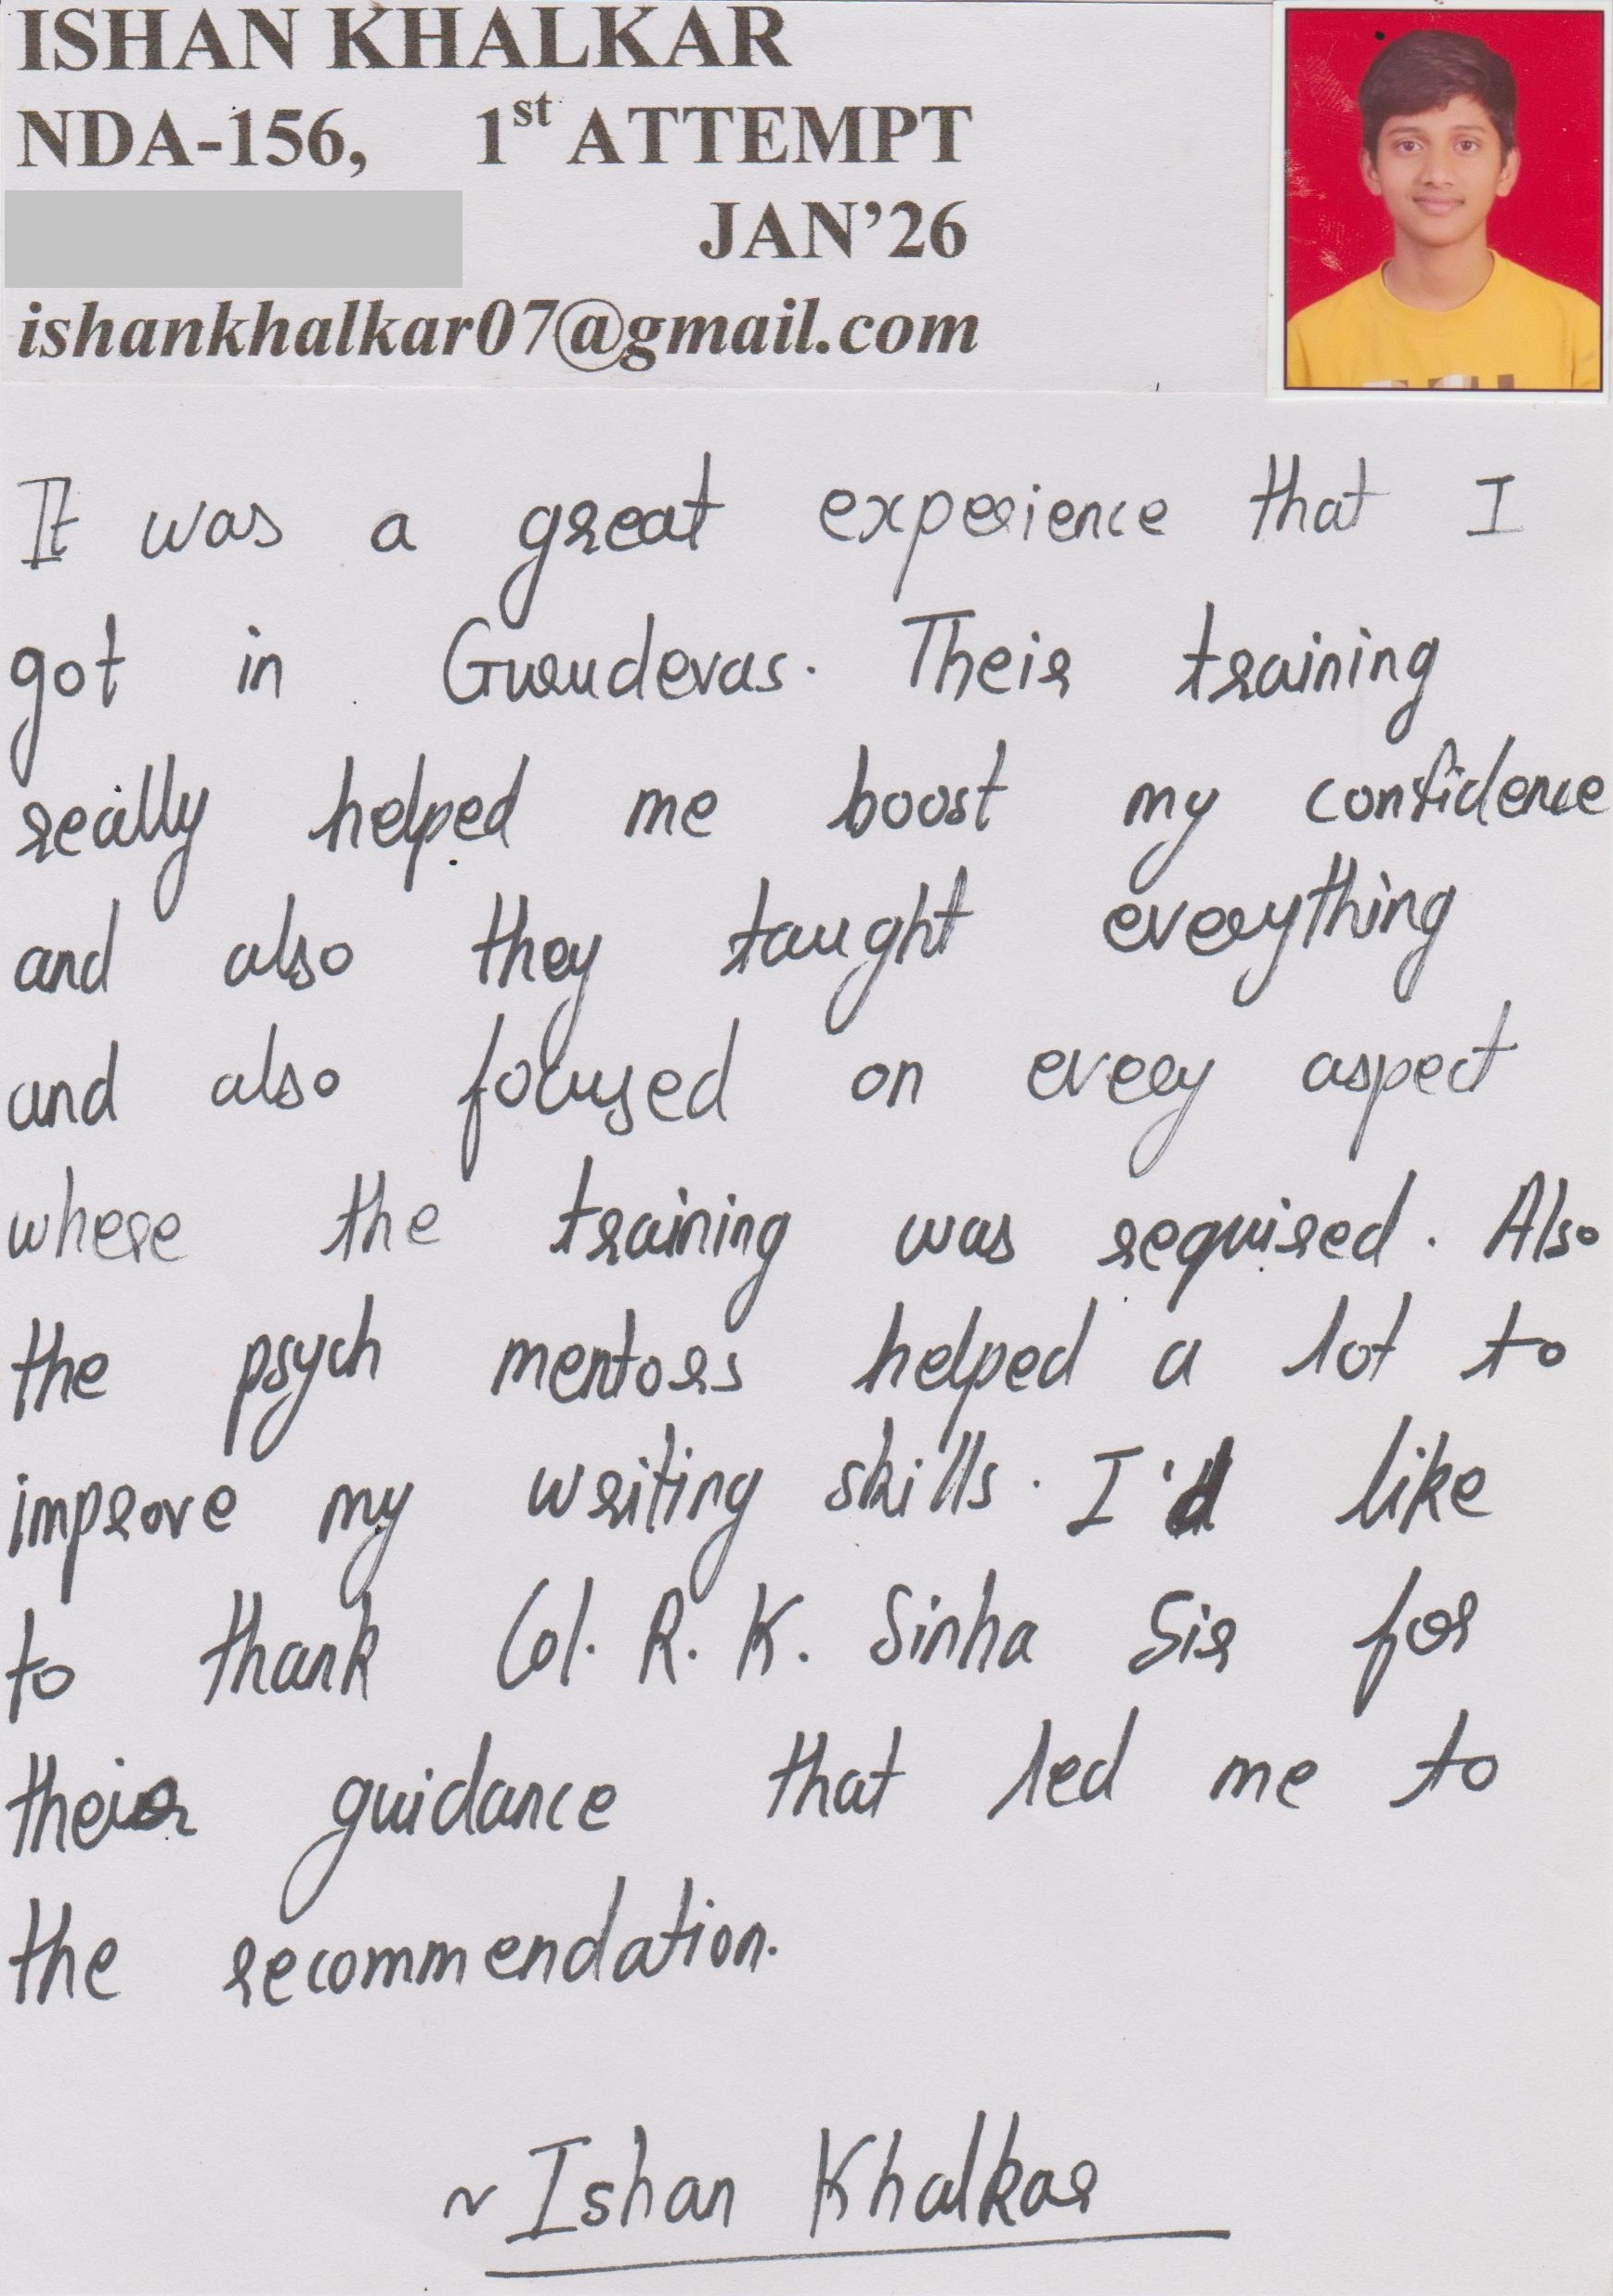 ISHAN KHALKAR
NDA-156, 1st ATTEMPT
JAN'26
ishankhalkar07@gmail.com
It was a great experience that I
got in Gurudevas. Their training
really helped me boost my confidence
and also they taught everything
and also focused on every aspect
where the training was required. Also
the psych mentors helped a lot to
improve my writing skills. I'd like
to thank Col. R. K. Sinha Sir for
their guidance that led me to
the recommendation.
~ Ishan Khalkar